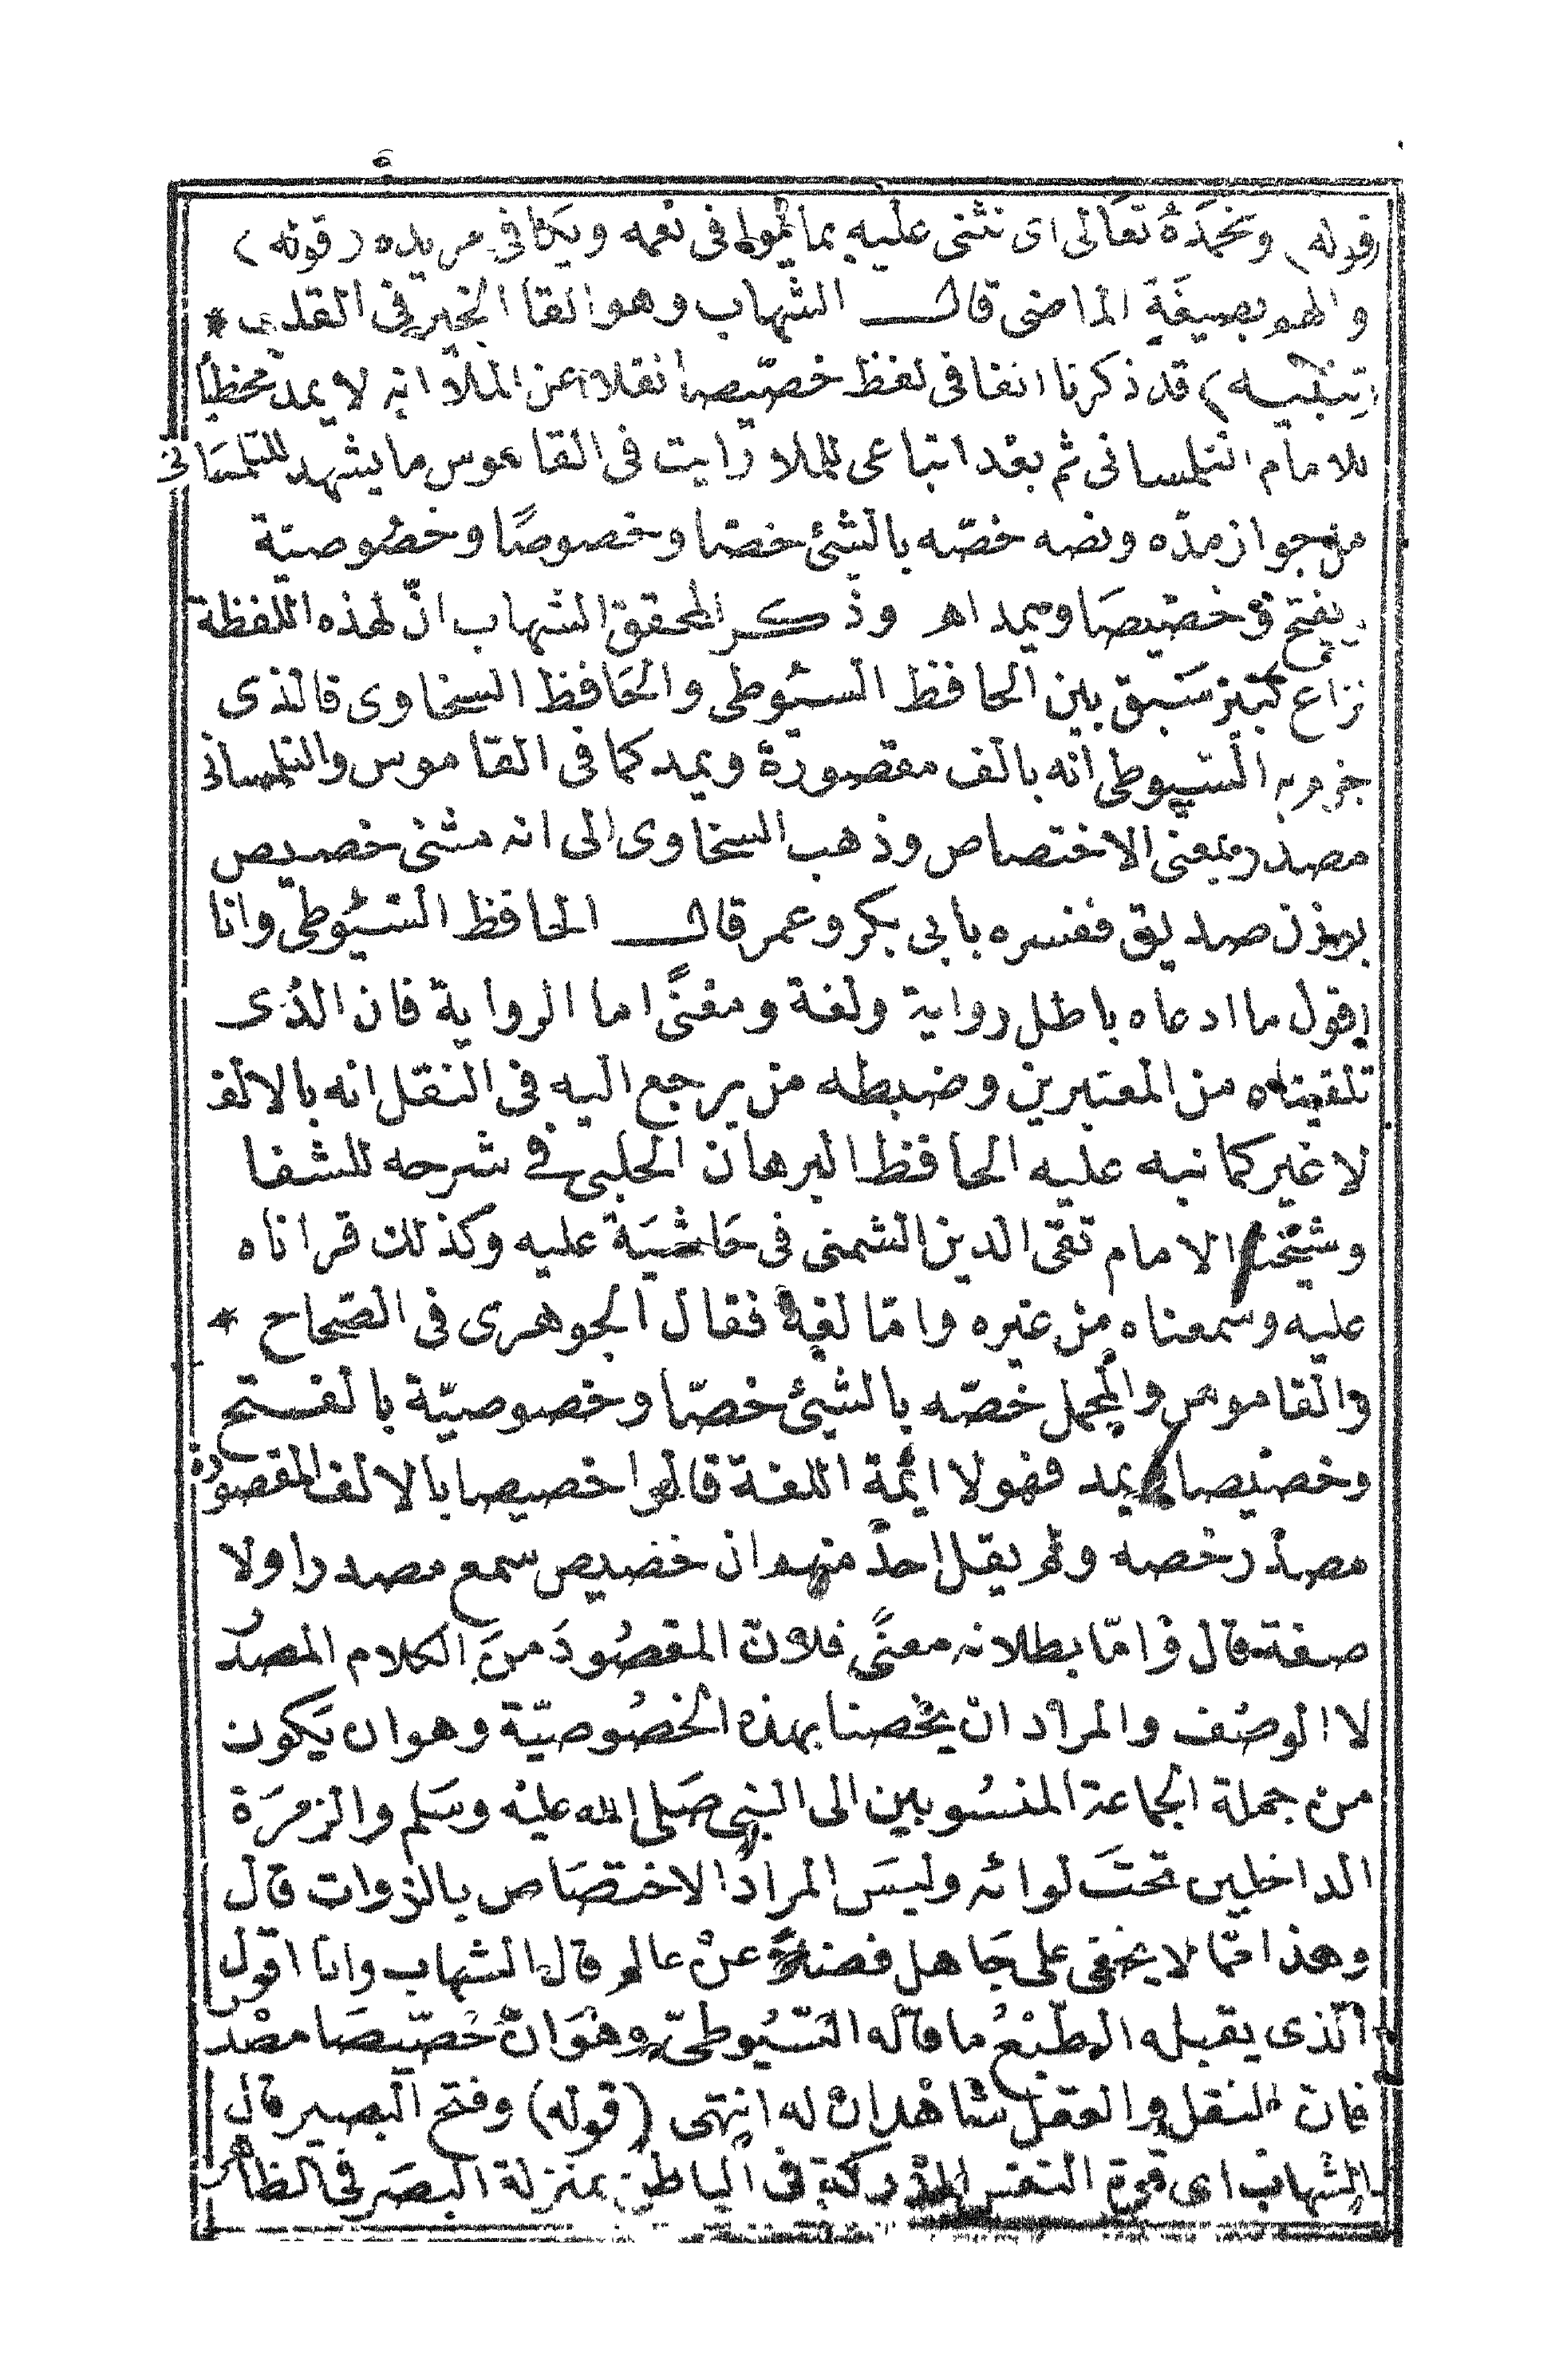 (قوله) ونحمده تعالى اى نثنى عليه بما يوافى نعمه ويكافى مزيده (قوله)
والهم بصيغة الماضى قال الشهاب وهو القا الخير فى القلب *
(تنبيه) قد ذكرنا انفا فى لفظ خصّيصا نقلا عن الملا انه لا يمد مخطيا
للامام التلمسانى ثم بعد اتباعى للملا رايت فى القاموس ما يشهد للتلمسانى
من جواز مده ونصه خصّه بالشئ خصّا وخصوصًا وخصُوصيّة
ويفتح وخصّيصَا ويمد اهـ وذكر المحقق الشهاب انّ لهذه اللفظة
نزاع كبير سَبق بين الحافظ السيُوطى والحَافظ السخاوى فالذى
جزم به السيوطى انه بالف مقصورة ويمد كما فى القاموس والتلمسانى
مصدر بمعنى الاختصاص وذهب السخاوى الى انه مثنى خصيص
بوزن صديق ففسره بابى بكر وعمر قال الحافظ السيُوطى وانا
اقول ما ادعاه باطل رواية ولغة ومعنًى اما الرواية فان الذى
تلقيناه من المعتبرين وضبطه من يرجع اليه فى النقل انه بالالف
لا غير كما نبه عليه الحافظ البرهان الحلبى فى شرحه للشفا
وشيخنا الامام تقى الدين الشمنى فى حَاشيَة عليه وكذلك قراناه
عليه وسمعناه من غيره وامّا لغة فقال الجوهرى فى الصحاح *
والقاموس والمجمل خصّه بالشئ خصّا وخصوصيّة بالفتح
وخصيصا ويمد فهولا ائمة اللغة قالوا خصيصا بالالف المقصورة
مصدر خصه ولم يقل احدٌ منهم ان خصيص سمع مصدرا ولا
صفة قال وامّا بطلانه معنًى فلان المقصُود من الكلام المصدر
لا الوصف والمراد ان يخصنا بهذه الخصُوصيّة وهو ان يَكون
من جملة الجماعة المنسُوبين الى النبى صَلى الله عليه وسَلم والزمرَة
الداخلين تحتَ لوائه وليسَ المراد الاختصَاص بالذوات قال
وهذا ممّا لا يخفى على جَاهل فضلا عنْ عالم قال الشهاب وانا اقول
الّذى يقبله الطبْعُ ما قاله السّيُوطىّ وهُوَ انّ خصّيصَا مصْدر
فان النقل والعقل شاهدان له انتهى (قوله) وفتح البصير قال
الشهاب اى قوة النفس المدركة فى الباطن بمنزلة البصَر فى الظاهر